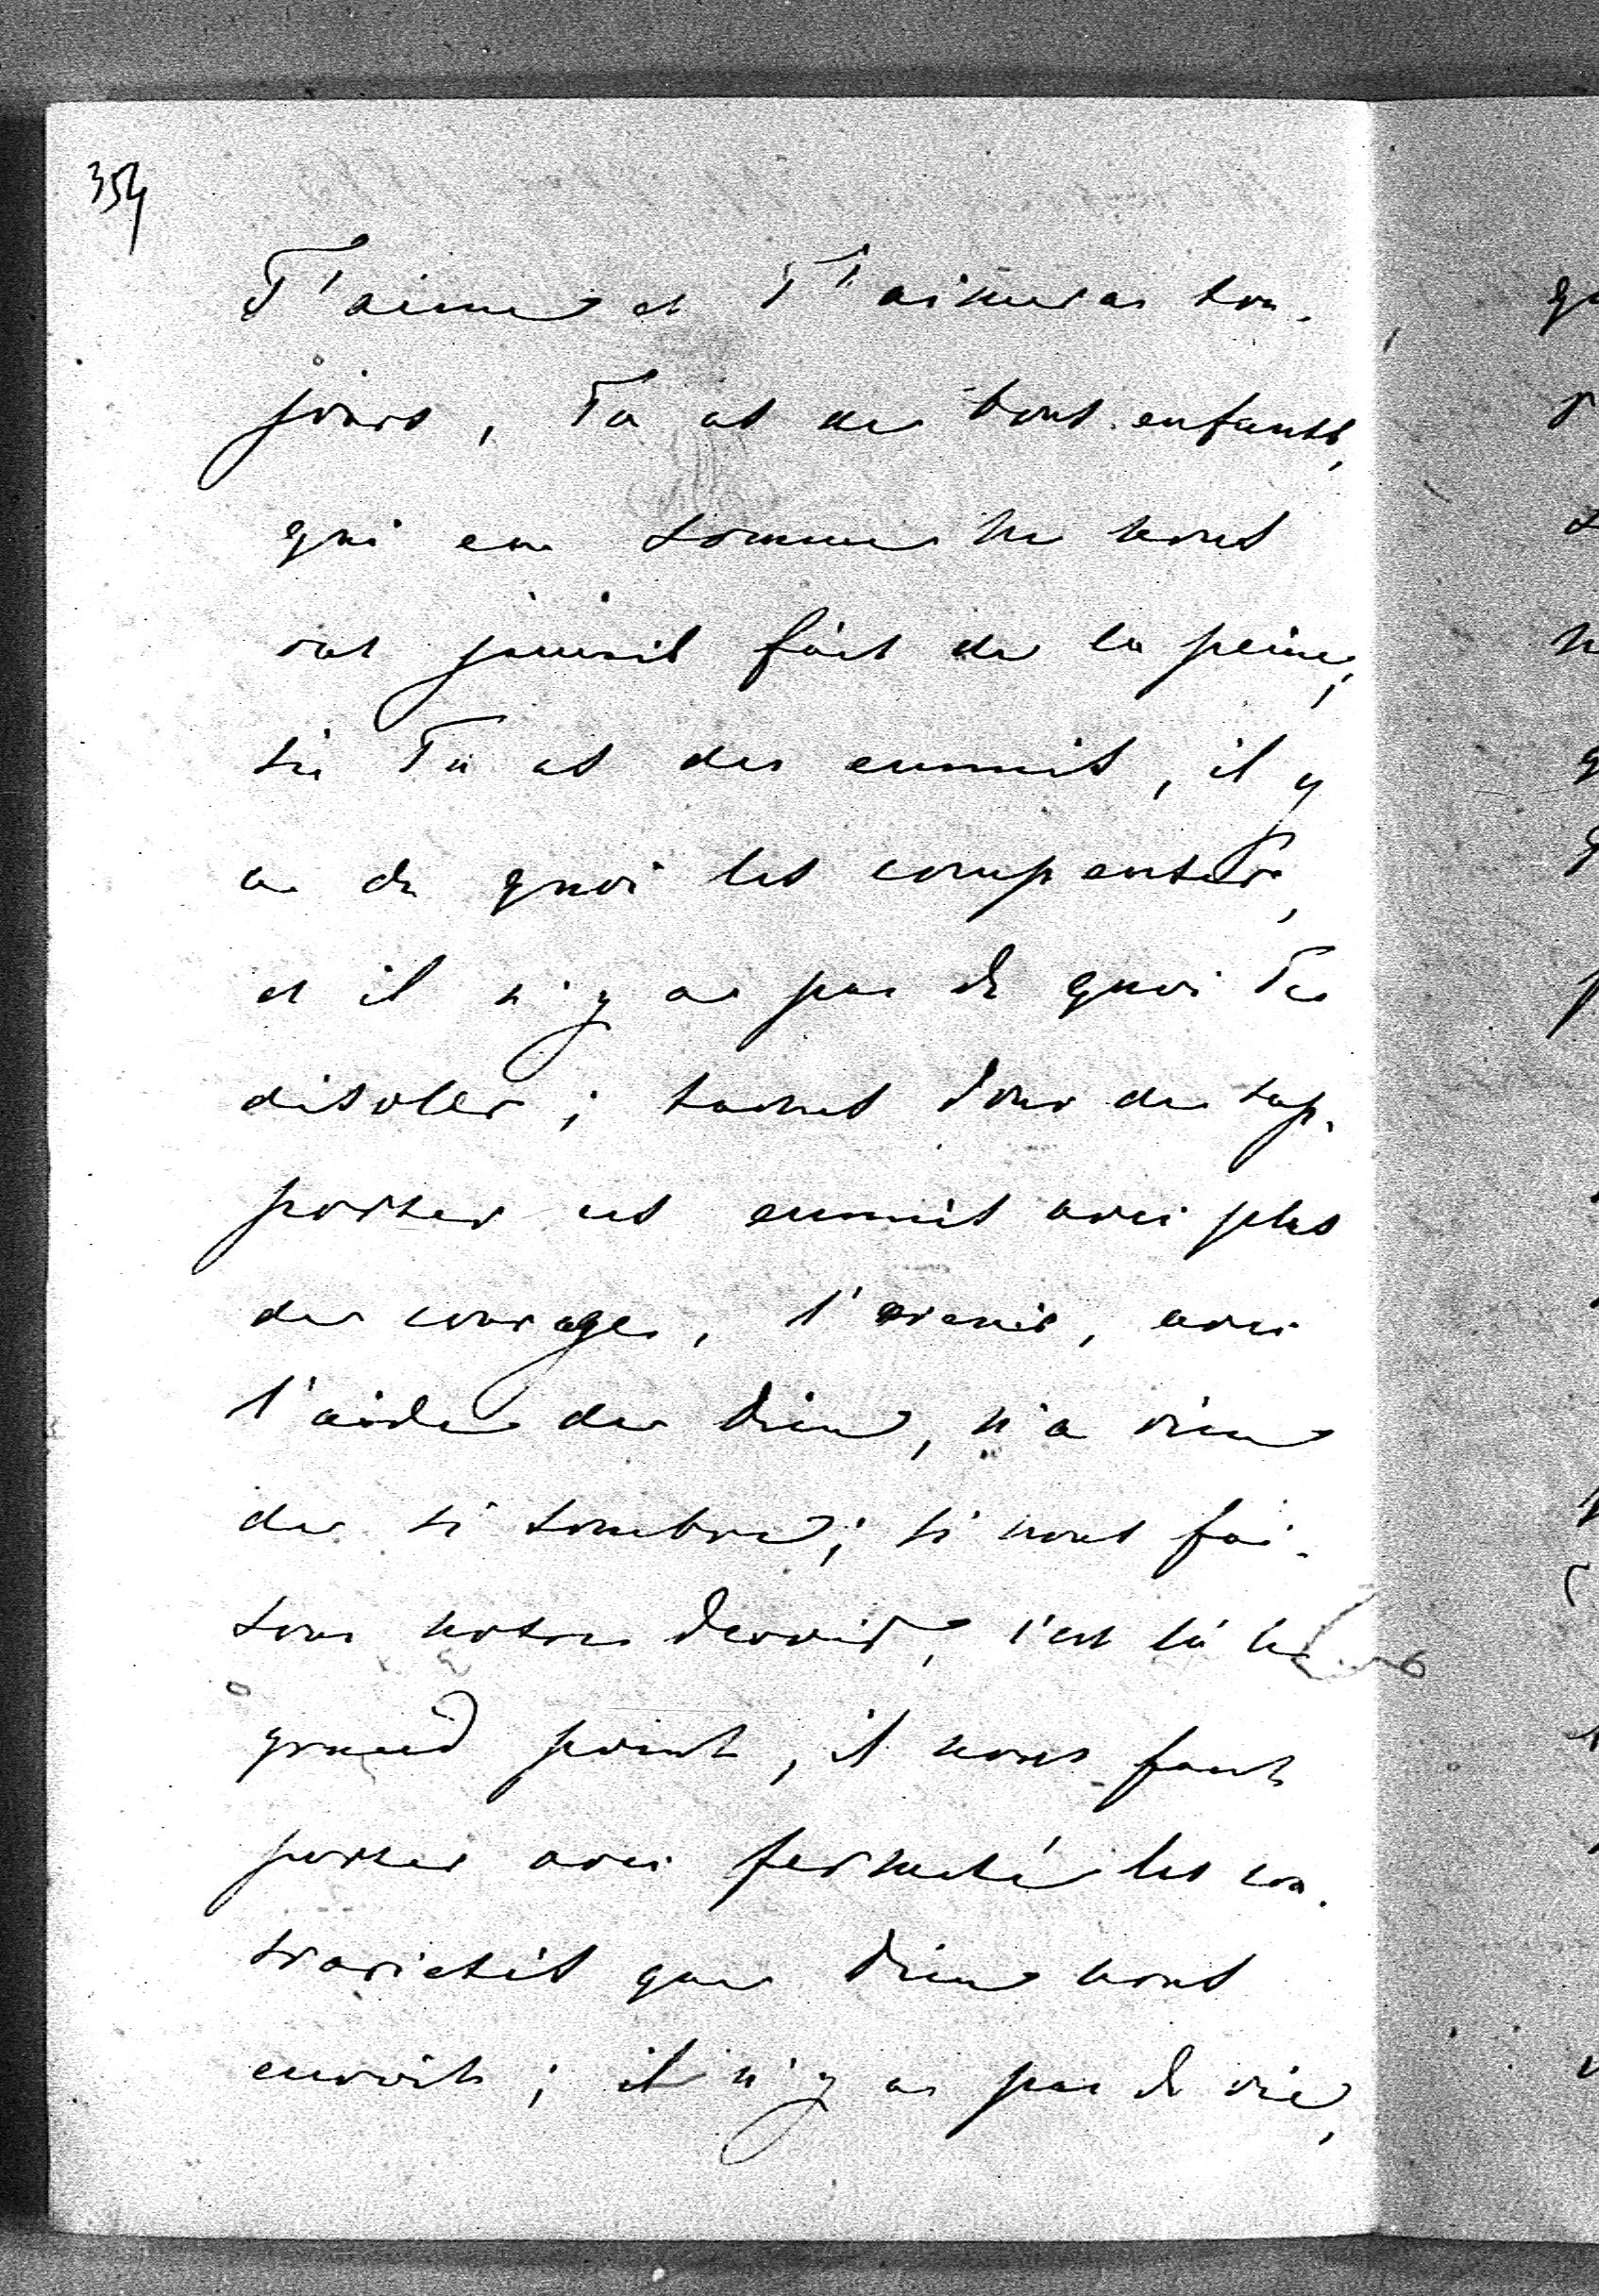 354
T'aime et T'aimera tou-
jours, Tu as de bons enfants,
qui en somme ne nous
ont jamais fait de la peine;
si Tu as des ennuis, il y
a de quoi les compenser,
et il n'y a pas de quoi Te
désoler; tachons donc de sup-
porter ces ennuis avec plus
de courage, l'avenir, avec
l'aide de Dieu, n'a rien
de si sombre; si nous fai-
sons notre devoir, c'est là le
grand point, il nous faut
porter avec fermeté les con-
trariétés que Dieu nous
envoit; il n'y a pas de vie,